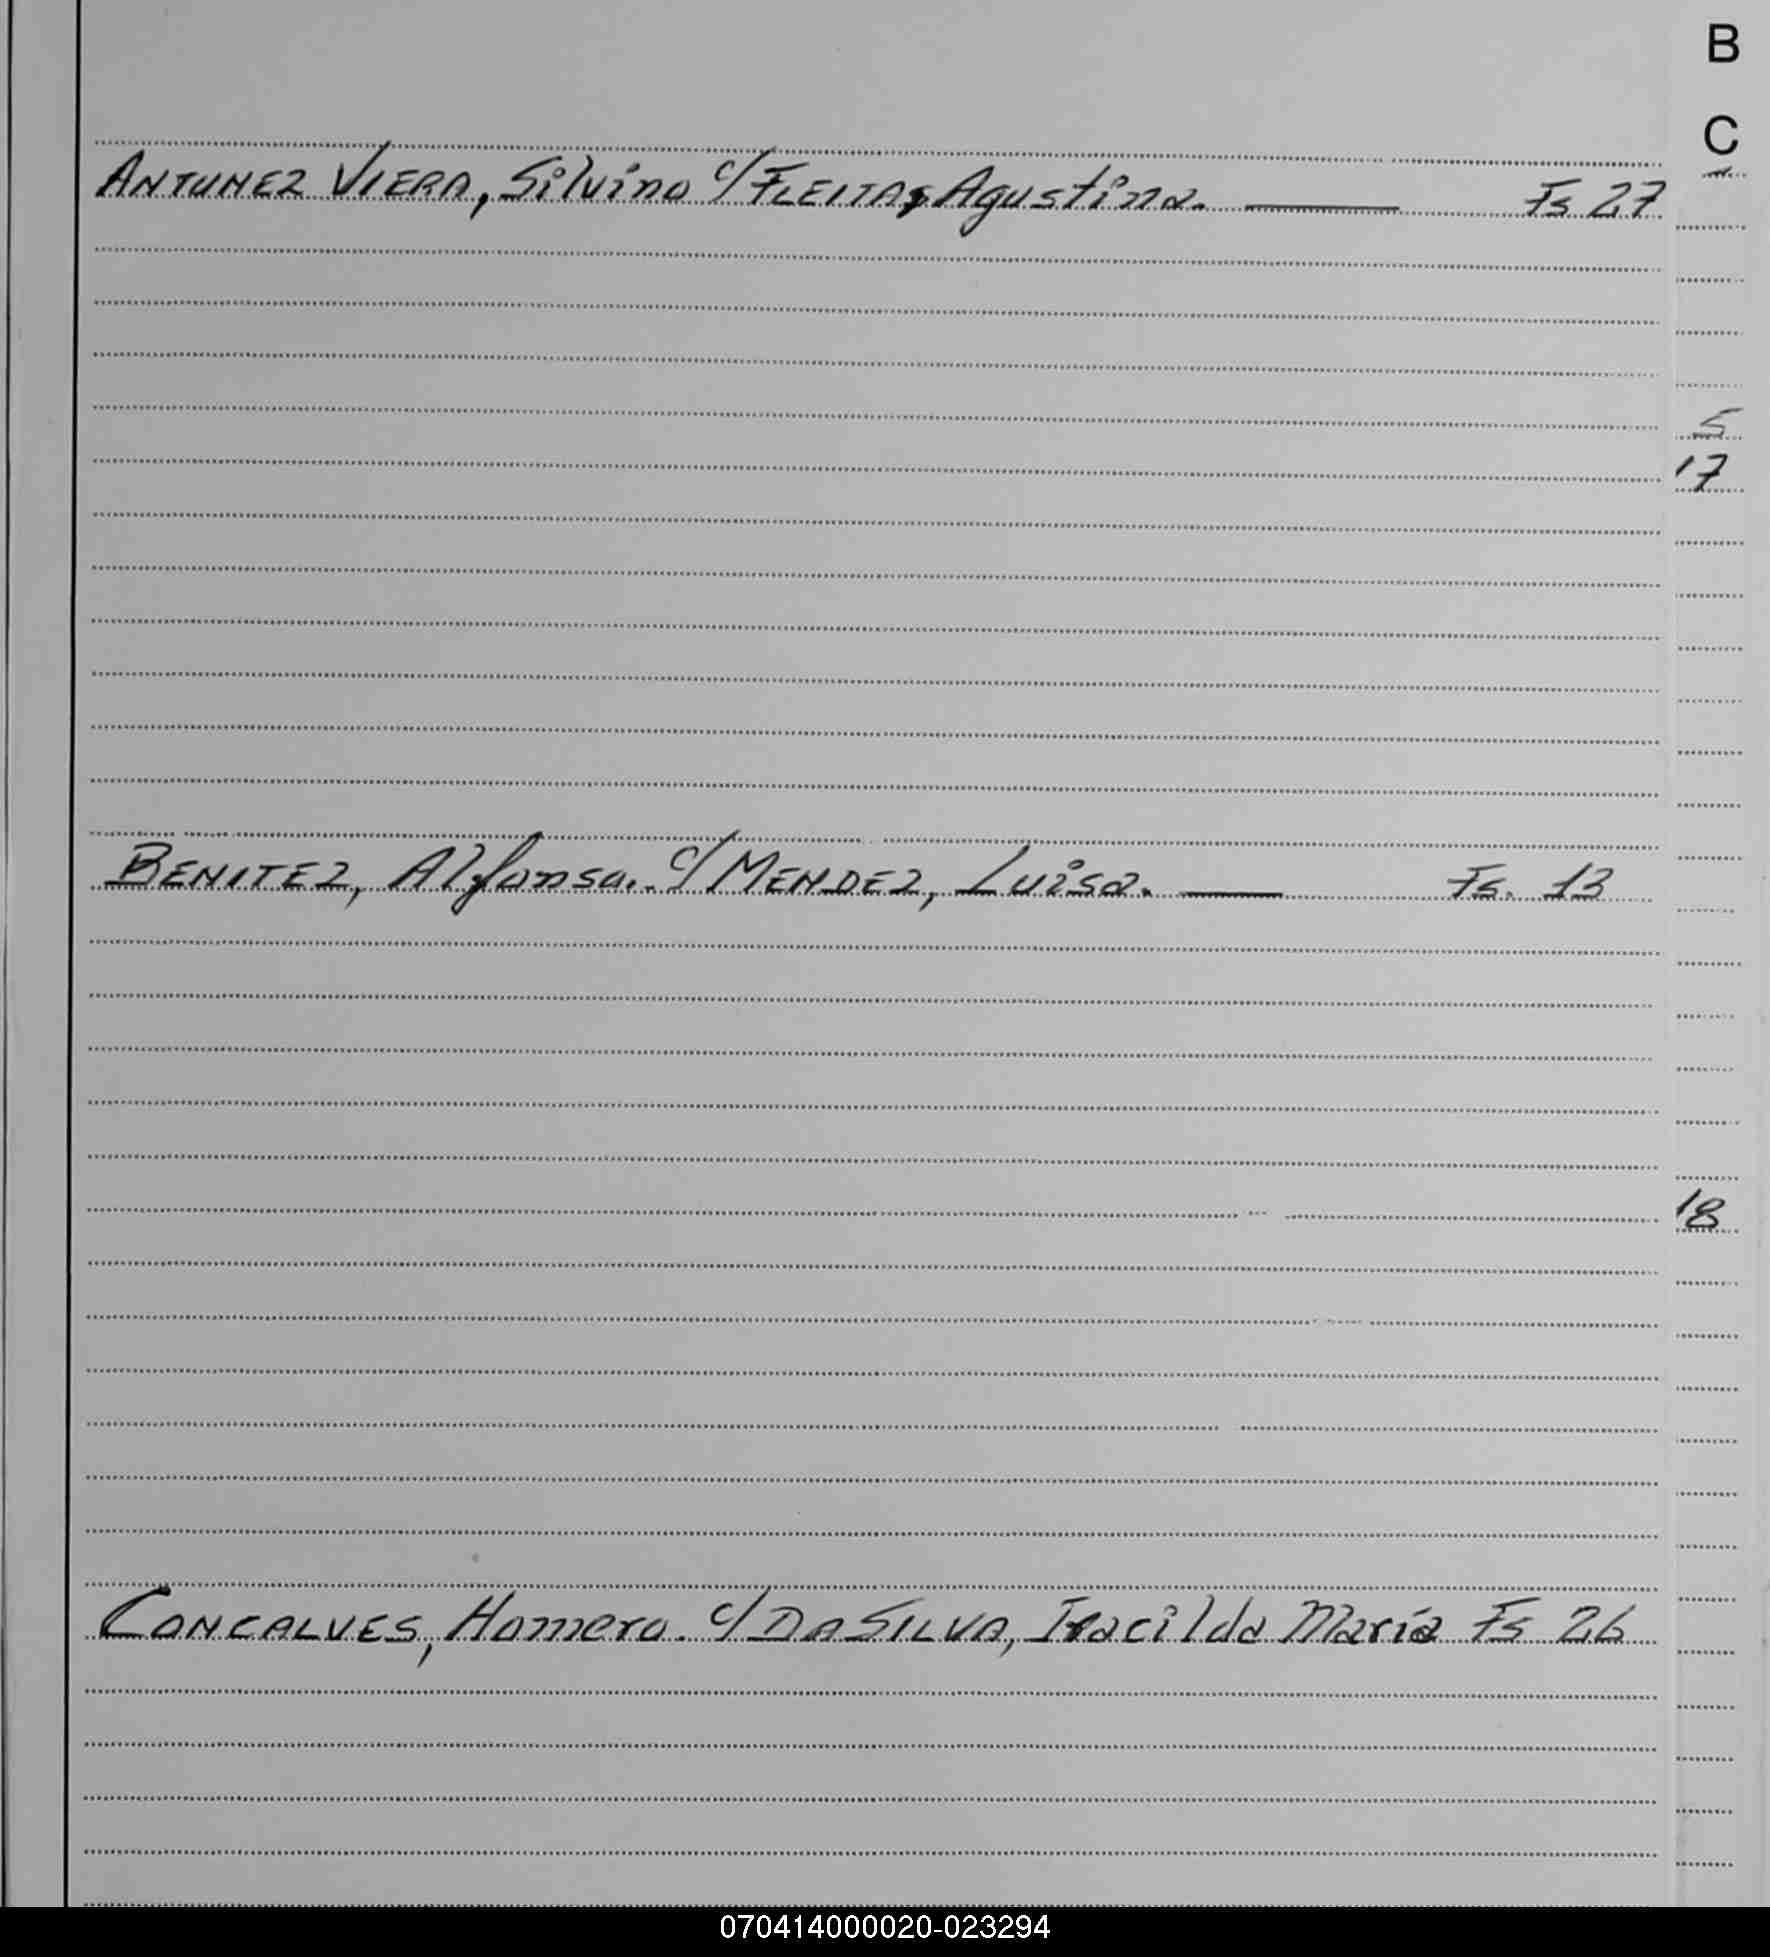 B
C
ANTUNEZ VIERA, Silvino c/FLEITAS, Agustina. Fs 27
5
17
BENITEZ, Alfonso. c/MENDEZ, Luisa. Fs. 13
18
CONCALVES, Homero. c/DASILVA, Iracilda María Fs 26
070414000020-023294